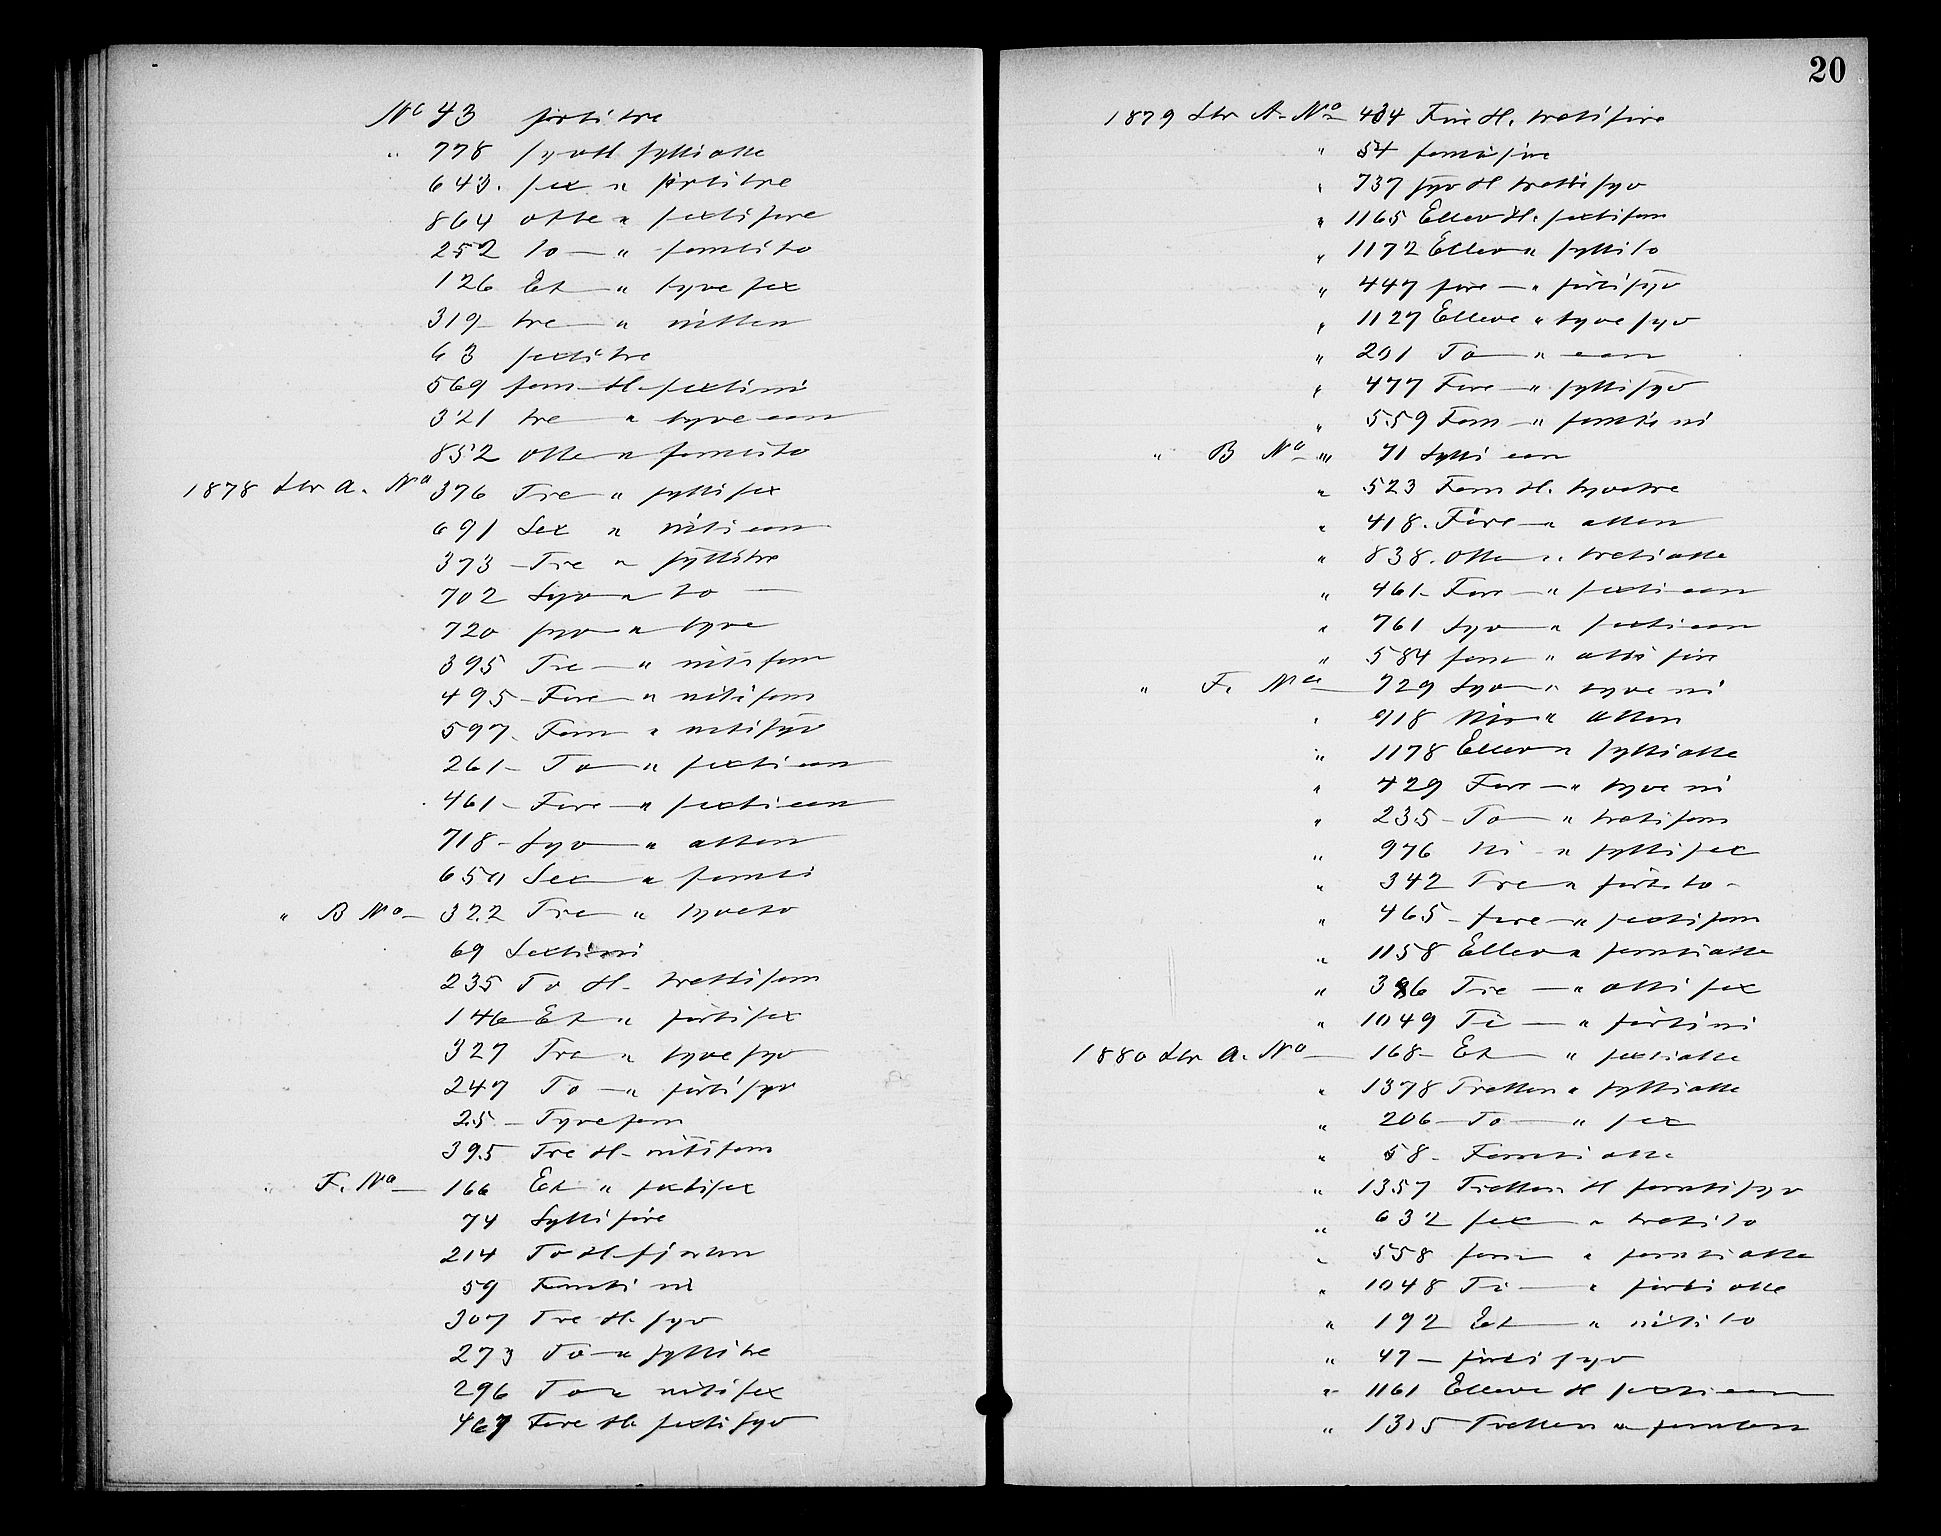 No 43 förti tre
" 778 syv H. sytti otte
643. sex " förti tre
864 otte " sexti fire
252 to — " femti to
126 Et — " tyve sex
319 tre — " nitten
63 sexti tre
569 fem H. sexti ni
321 tre — " tyve een
852 otte " femti to
1878 Ltr A. No 376 Tre " sytti sex
691 Sex " niti een
373 Tre " sytti tre
702 Syv " to —
720 syv " tyve
395 Tre — " niti fem
495 Fire — " niti fem
597 Fem " niti syv
261 — To — " sexti een
461 — Fire — " sexti een
718 — Syv — " atten
650 Sex — " femti
" B No — 322 Tre " tyve to
69 Sexti ni
235 To H. tretti fem
146 Et " förti sex
327 Tre " tyve syv
247 To — " förti syv
25 — Tyve fem
395 Tre H. niti fem
" F. No — 166 Et " sexti sex
74 Sytti fire
214 To H. fjorten
59 Femti ni
307 Tre H. syv
273 To — " sytti tre
296 To " niti sex
467 Fire H. sexti syv
20
1879 Ltr A. No — 434 Fire H. treti fire
" 54 femti fire
" 737 syv H tretti syv
" 1165 Ellev H. sexti fem
" 1172 Ellev " sytti to
" 447 fire — " förti syv
" 1127 Elleve " tyve syv
" 201 To — " een
" 477 Fire — " sytti syv
" 559 Fem — " femti ni
" B No " 71 Sytti een
" 523 Fem H. tyve tre
" 418. Fire — " atten
" 838. Otte " treti otte
" 461 — Fire — " sexti een
" 761 Syv — " sexti een
" 584 fem " otti fire
" F. No — 729 Syv — " tyve ni
" 918 Ni — " Atten
" 1178 Ellev " sytti otte
" 429 Fire — " tyve ni
" 235 — To — " treti fem
" 976 Ni — " sytti sex
" 342 Tre — " förti to —
" 465 — fire — " sexti fem
" 1158 Ellev " femti otte
" 386 Tre — " otti sex
" 1049 Ti — " förti ni
1880 Ltr A. No — 168 — Et — " sexti otte
" 1378 Tretten " sytti otte
" 206 — To — " sex
" 58 — Femti otte
" 1357 Tretten H femti syv
" 632 sex — " treti to
" 558 fem — " femti otte
" 1048 Ti — " förti otte
" 192 Et — " niti to
" 47 — förti syv
" 1161 Elleve H sexti een
" 1315 Tretten " femten